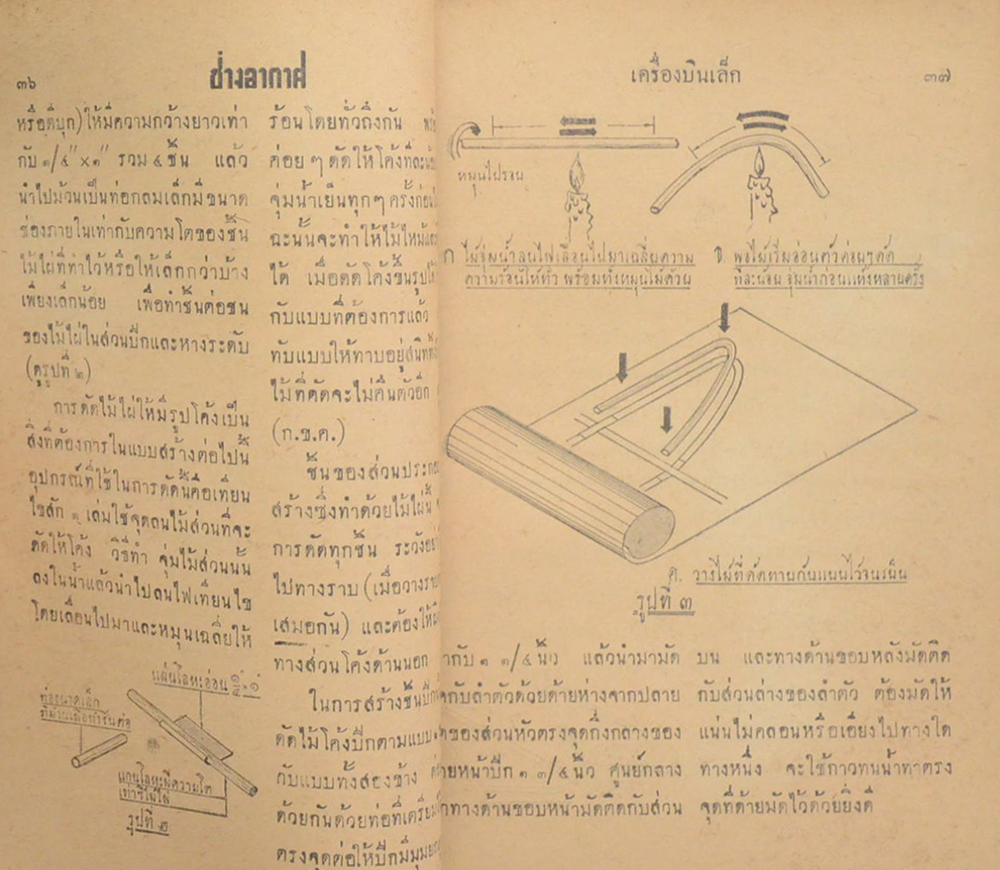 ๓๖
ช่างอากาศ
หรือดีบุก) ให้มีความกว้างยาวเท่า
กับ ๑/๔" × ๑" รวม ๔ ชิ้น แล้ว
นำไปม้วนเป็นท่อกลมเล็กมีขนาด
ช่องภายในเท่ากับความโตของชิ้น
ไม้ไผ่ที่ทำไว้หรือให้เล็กกว่าบ้าง
เพียงเล็กน้อย เพื่อทำชิ้นต่อชน
ของไม้ไผ่ในส่วนปีกและหางระดับ
(ดูรูปที่ ๒)
การดัดไม้ไผ่ให้มีรูปโค้งเป็น
สิ่งที่ต้องการในแบบสร้างต่อไปนี้
อุปกรณ์ที่ใช้ในการดัดนี้คือเทียน
ไขสัก ๑ เล่มใช้จุดลนไม้ส่วนที่จะ
ดัดให้โค้ง วิธีทำ จุ่มไม้ส่วนนั้น
ลงในน้ำแล้วนำไปลนไฟเทียนไข
โดยเลื่อนไปมาและหมุนเฉลี่ยให้
แผ่นโลหะอ่อน
ท่อขนาดเล็ก
ที่ม้วนเพื่อทำชิ้นต่อ
แกนโลหะมีความโต
เท่าชิ้นไม้ไผ่
รูปที่ ๒
ร้อนโดยทั่วถึงกัน
ค่อย ๆ ดัดให้โค้งทีละน้อย
จุ่มน้ำเย็นทุกๆ ครั้งก่อน
ฉะนั้นจะทำให้ไม้ไหม้
ได้ เมื่อดัดโค้งขึ้นรูปได้
กับแบบที่ต้องการแล้ว
ทับแบบให้ทาบอยู่สนิท
ไม้ที่ดัดจะไม่คืนตัวอีก
(ก.ข.ค.)
ชิ้นของส่วนประกอบ
สร้างซึ่งทำด้วยไม้ไผ่นี้
การดัดทุกชิ้น ระวังอย่า
ไปทางราบ (เมื่อวางราบ
เสมอกัน) และต้องให้
ทางส่วนโค้งด้านนอก
ในการสร้างชิ้นปีก
ดัดไม้โค้งปีกตามแบบ
กับแบบทั้งสองข้าง
ด้วยกันด้วยท่อที่เตรียม
ตรงจุดต่อให้ปีกมีมุม
เครื่องบินเล็ก
๓๗
หมุนไปรอบ
ก ไม้จุ่มน้ำลนไฟเลื่อนไปมาเฉลี่ยความ
ความร้อนให้ทั่ว พร้อมทั้งหมุนไม้ด้วย
ข. พอไม้เริ่มอ่อนตัวค่อยๆดัด
ทีละน้อย จุ่มน้ำก่อนแห้งหลายครั้ง
ค. วางไม้ที่ดัดทาบกับแบบไว้จนเย็น
รูปที่ ๓
ากับ ๑ ๑/๔ นิ้ว แล้วนำมามัด
กับลำตัวด้วยด้ายห่างจากปลาย
ของส่วนหัวตรงจุดกึ่งกลางของ
ายหน้าปีก ๑ ๓/๔ นิ้ว ศูนย์กลาง
ทางด้านขอบหน้ามัดติดกับส่วน
บน และทางด้านขอบหลังมัดติด
กับส่วนล่างของลำตัว ต้องมัดให้
แน่นไม่คลอนหรือเอียงไปทางใด
ทางหนึ่ง จะใช้กาวทนน้ำทาตรง
จุดที่ด้ายมัดไว้ด้วยยิ่งดี